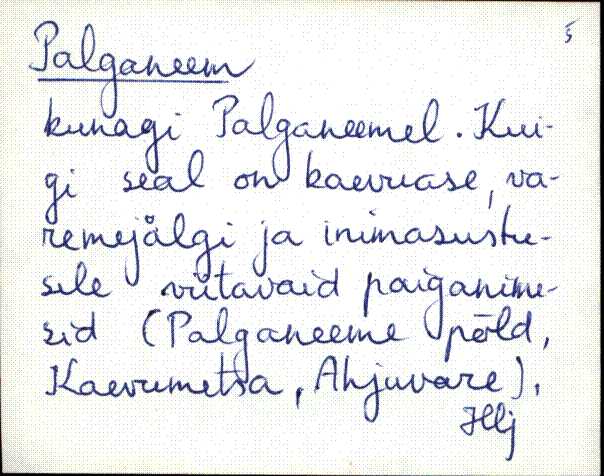 5
Palganeem
kunagi Palganeemel. Kui-
gi seal on kaevuase, va-
remejälgi ja inimasustu-
sele viitavaid paiganime-
sid (Palganeeme põld,
Kaevumetsa, Ahjuvare).